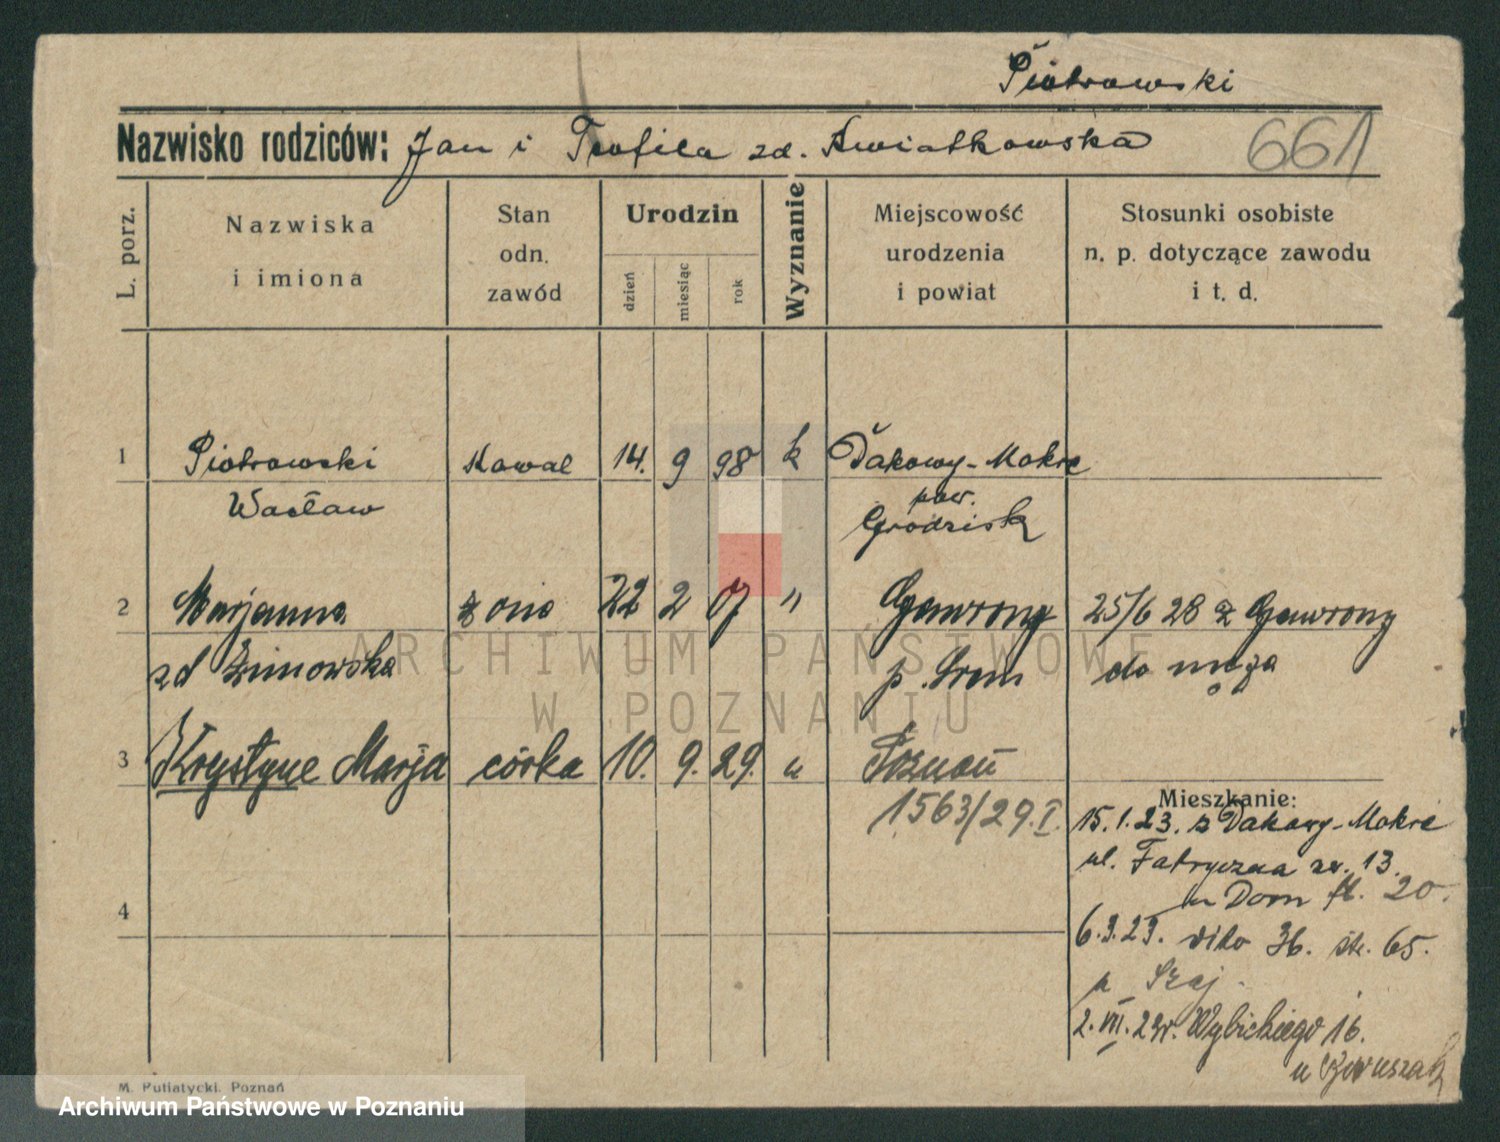 Piotrowski
Nazwisko rodziców: Jan i Teofila zd. Kwiatkowska
661
L. porz.
Nazwiska
i imiona
Stan
odn.
zawód
Urodzin
dzień
miesiąc
rok
Wyznanie
Miejscowość
urodzenia
i powiat
Stosunki osobiste
n. p. dotyczące zawodu
i t. d.
1 Piotrowski Kowal 14. 9 98 k Dakowy-Mokre
Wacław pow.
Grodzisk
2 Marjanna żona 22 2 07 " Gawrony 25/6 28 z Gawrony
zd Zimowska p. Śrem do męża
3 Krystyne Marja córka 10. 9. 29. u Poznań
1563/29.I.
Mieszkanie:
15.1.23. z Dakowy-Mokre
ul. Fabryczna nr. 13.
u Dom fl. 20.
6.3.23. dito 36. st. 65.
p
2.VII.29r. Wybickiego 16.
u
4
M. Putiatycki, Poznań
ARCHIWUM PAŃSTWOWE
W POZNANIU
Archiwum Państwowe w Poznaniu